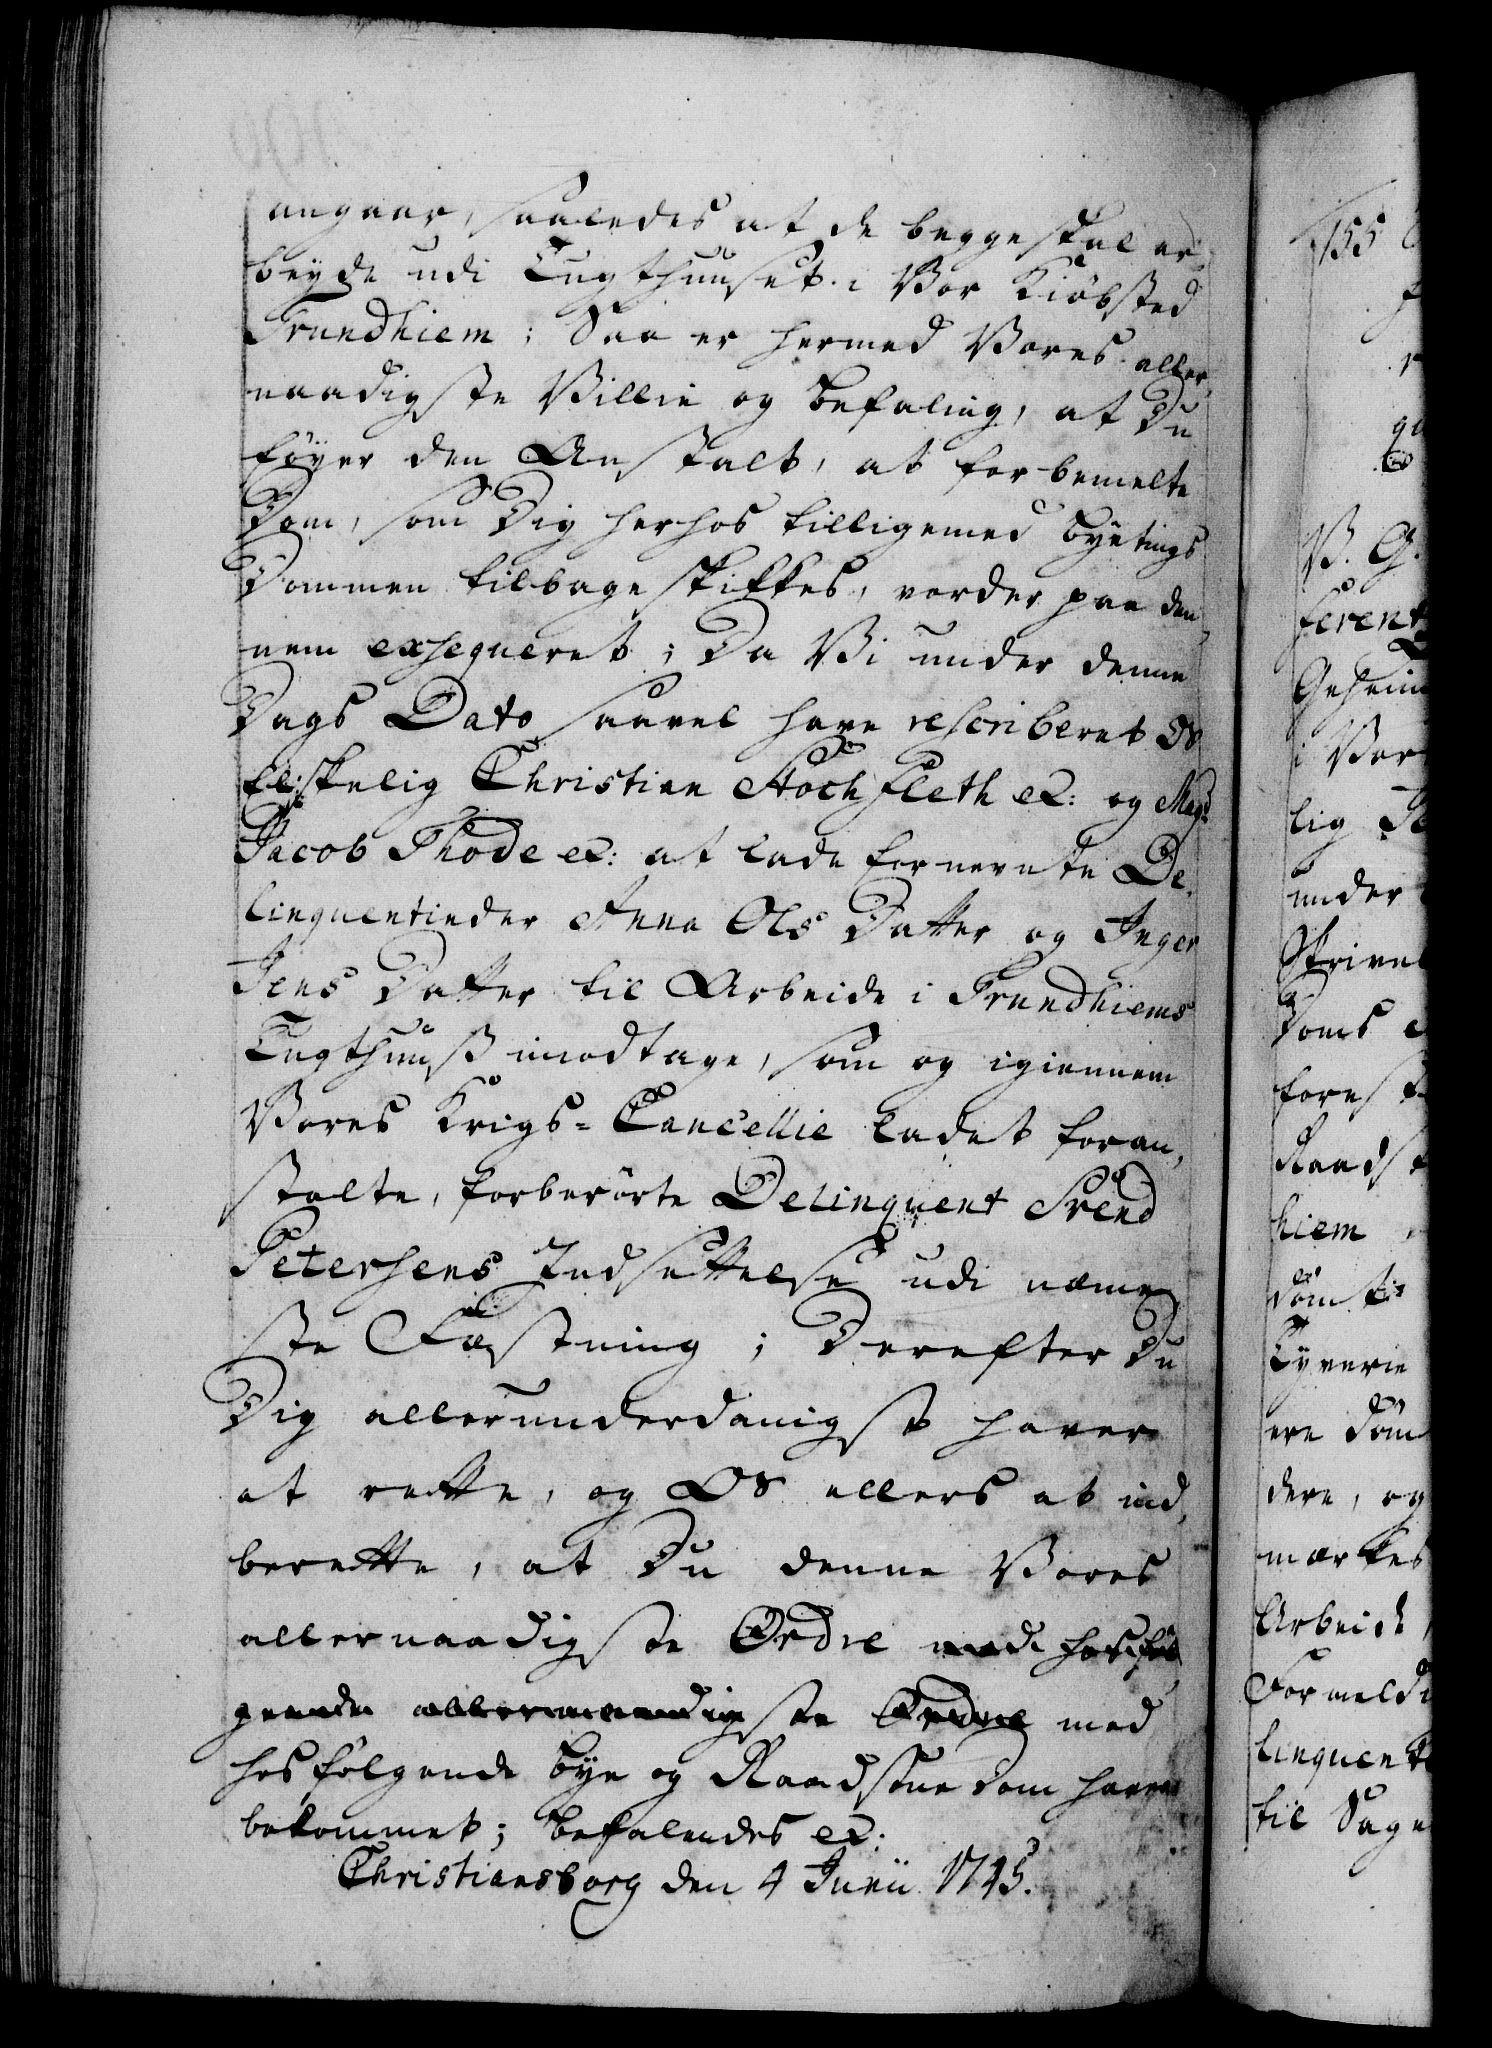 angaar, saaledes at de begge skal ar-
beyde udi Tugthuuset i Vor Kiøbsted
Trundhiem; Saa er hermed Vores aller-
naadigste Villie og Befaling, at Du
føyer den Anstalt, at forbemelte
Dom, som Dig herhos tilligemed Byetings
Dommen tilbage skikkes, vorder paa den-
nem exseqveret; Da Vi under denne
Dags Dato saavel have rescriberet Os
Elskelig Christian Stochfleth etc: og Mag:
Jacob Thode etc: at lade fornevnte De-
linquentinder Anna Ols Datter og Inger
Jens Datter til Arbeide i Trundhiems
Tugthuuß imodtage, som og igiennem
Vores Krigs-Cancellie ladet foran-
stalte, forberørte Delinquent Svend
Petersens Indsettelse udi neme-
ste Fæstning; Derefter Du
Dig allerunderdanigst haver
at rette, og Os ellers at ind-
berette, at Du denne Vores
allernaadigste Ordre med hosføl-
gende allernaadigste Ordre med
hosfølgende Bye og Raadstue Dom haver
bekommet; Befalendes etc:
Christiansborg den 4 Junii 1745.
155
V. G.
ferent
Geheim
i Vor
lig
under
Skrivel
Doms
fores
Raadst
hiem
Dom ti
Tyverie
ere Døm
dere, og
mærkes
Arbeide,
Formeld
linquent
til Sage